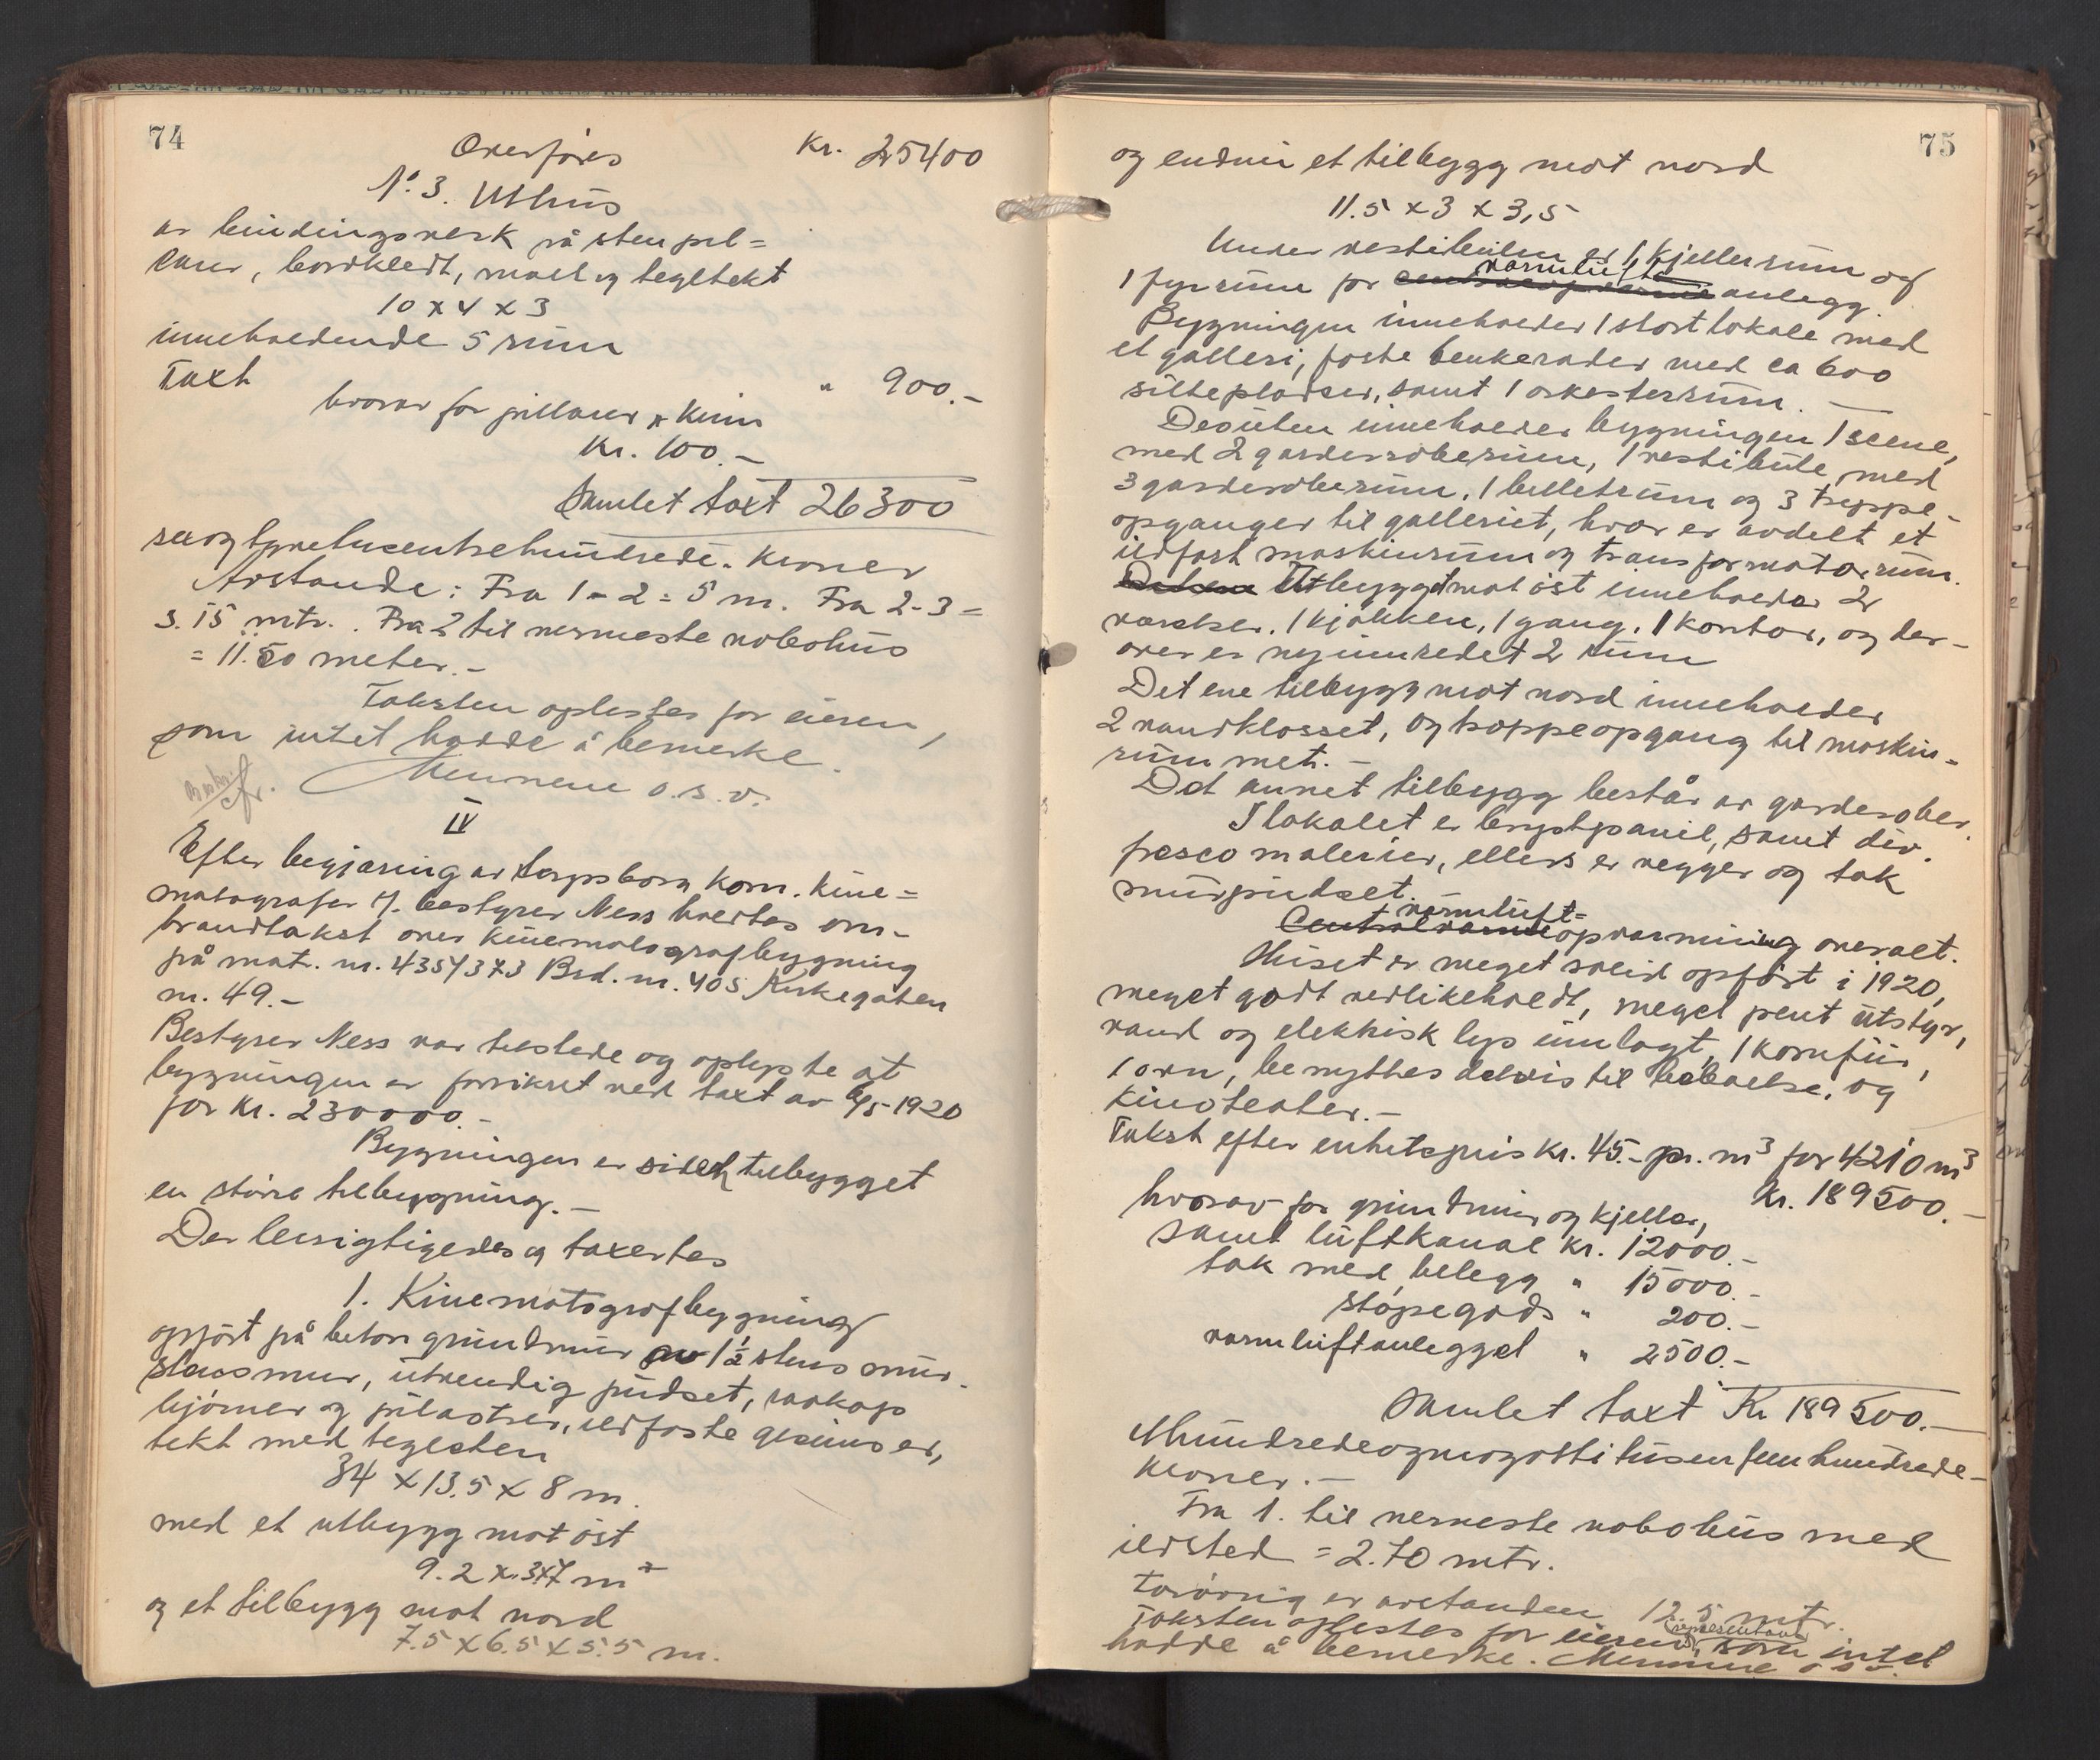 74
Overføres Kr. 25400
No. 3. Uthus
av bindingsverk på stenpil=
larer, bordkledt, malt og tegltekt
10 x 4 x 3
inneholdende 5 rum
Taxt " 900.-
hvorav for pillarer
Kr. 100.-
Samlet taxt 26300
sexogtyvetusentrehundrede. Kroner
Avstande: Fra 1-2 = 5 m. Fra 2-3 =
3.15 mtr. Fra 2 til nermeste nabohus
= 11.50 meter.-
Taksten oplestes for eieren,
som intet hadde å bemerke.
Mennene o.s.v.
IV
Efter begjæring av Sarpsborg kom. kine=
matografer v/ bestyrer Ness holdtes om-
brandtakst over kinematografbygning
på mat. nr. 435/373 Brd. nr. 405 Kirkegaten
nr. 49.-
Bestyrer Ness var tilstede og oplyste at
bygningen er forsikret ved taxt av 6/5-1920
for kr. 230000.-
Bygningen er siden tilbygget
en større tilbygning.-
Der besigtigedes og taxertes
1. Kinematografbygning
opført på beton grundmur av 1½ stens mur.
slaosmur, utvendig pudset,
hjørner og pilastrer, ildfaste gesimser,
tekt med teglsten
34 x 13.5 x 8 m.
med et utbygg mot øst
9.2 x 3x7 m
og et tilbygg mot nord
7.5 x 6.5 x 5.5 m.
75
og endnu et tilbygg mot nord
11.5 x 3 x 3,5
Under vestibulen er 1 kjellerrum og
varmlufts
1 fyrrum for anlegg.
Bygningen inneholder 1 stort lokale med
et galleri, faste benkerader med ca 600
sitteplasser, samt 1 orkesterrum.-
Desuten inneholder bygningen 1 scene,
med 2 garderoberum, 1 vestibule med
3 garderoberum, 1 billetrum og 3 trappe-
opganger til galleriet, hvor er avdelt et
ildfast maskinrum og transformatorrum.
Utbygget mot øst inneholder 2
værelser, 1 kjøkken, 1 gang, 1 kontor, og der-
over er nyinnredet 2 rum
Det ene tilbygg mot nord inneholder
2 vandklosset, og trappeopgang til maskin-
rummet.-
Det annet tilbygg består av garderober.
I lokalet er brystpanel, samt div.
fresco malerier, ellers er vegger og tak
murpudset.
varmluft=
Centralvarme opvarming overalt.
Huset er meget solid opført i 1920,
meget godt vedlikeholdt, meget pent utstyr,
vand og elektrisk lys innlagt, 1 komfur,
1 ovn, benyttes delvis til beboelse, og
kinoteater.-
Takst efter enhetspris kr. 45.- pr. m3 for 4210 m3
Kr. 189500.-
hvorav for grundmur og kjeller,
samt luftkanal kr. 12000.-
tak med belegg " 15000.-
støpegods " 200.-
varmluftanlegget " 2500.-
Samlet taxt Kr 189500.-
Ethundredeogniogottitusenfemhundrede-
kroner.-
Fra 1. til nermeste nabohus med
ildsted = 2.70 mtr.
Forøvrig er avstanden 12.5 mtr.
representant
Taksten oplestes for eierens som intet
hadde å bemerke. Mennene o.s.v.